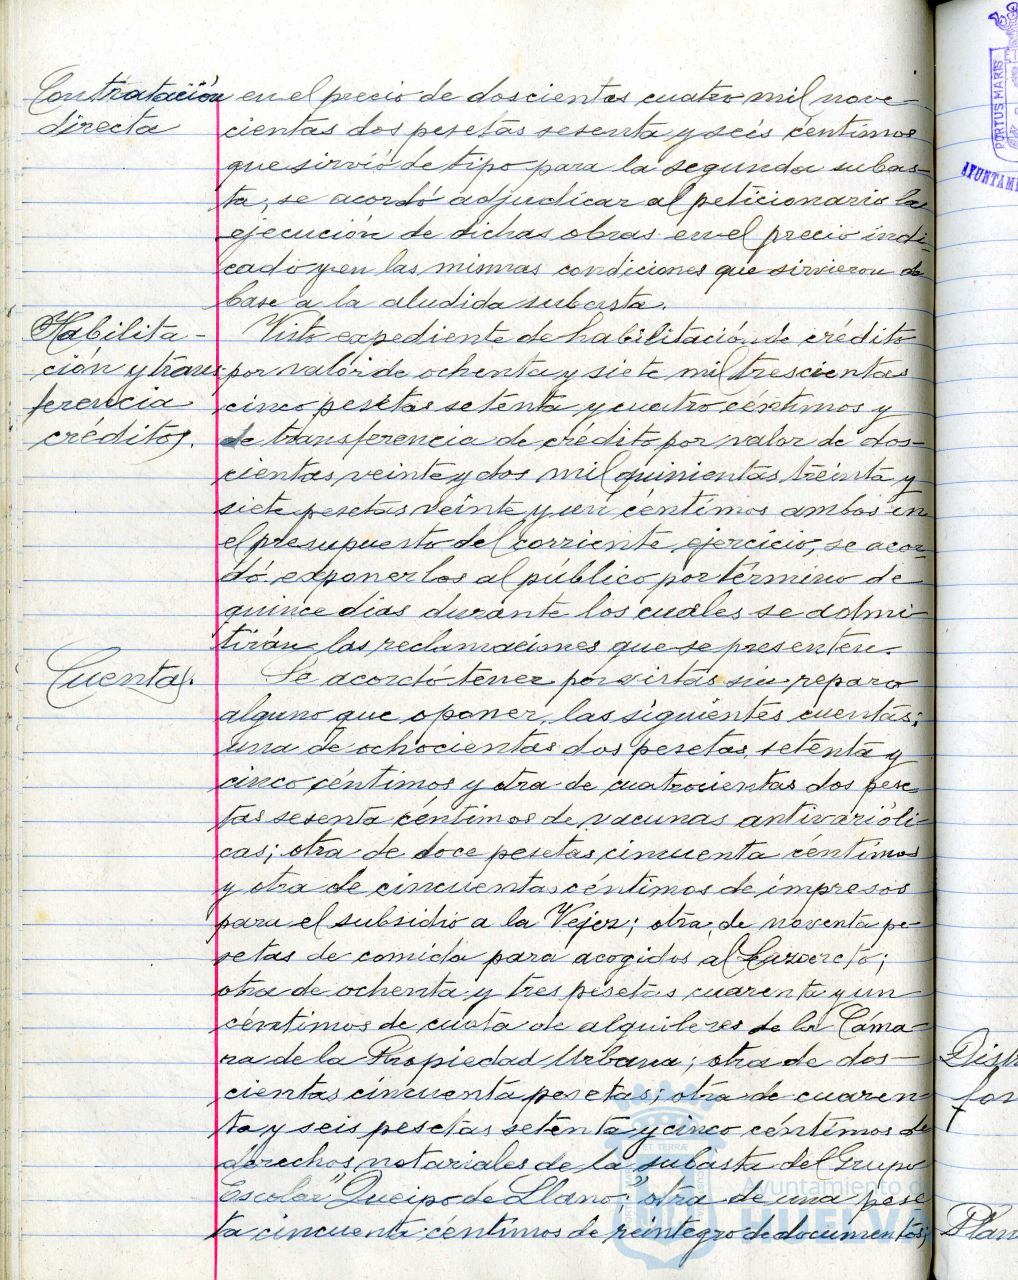 Contratación
directa
en el precio de doscientas cuatro mil nove-
cientas dos pesetas sesenta y seis céntimos
que sirvió de tipo para la segunda subas-
ta, se acordó adjudicar al peticionario la
ejecución de dichas obras en el precio indi-
cado y en las mismas condiciones que sirvieron de
base a la aludida subasta.
Habilita-
ción y trans
ferencia
créditos.
Visto expediente de habilitación de crédito
por valor de ochenta y siete mil trescientas
cinco pesetas setenta y cuatro céntimos y
de transferencia de crédito por valor de dos-
cientas veinte y dos mil quinientas treinta y
siete pesetas veinte y un céntimos ambos en
el presupuesto del corriente ejercicio, se acor-
dó exponerlos al público por término de
quince dias durante los cuales se admi-
tirán las reclamaciones que se presenten.
Cuentas.
Se acordó tener por vistas sin reparo
alguno que oponer, las siguientes cuentas:
una de ochocientas dos pesetas, setenta y
cinco céntimos y otra de cuatrocientas dos pese-
tas sesenta céntimos de vacunas antivarióli-
cas; otra de doce pesetas cincuenta céntimos
y otra de cincuenta céntimos de impresos
para el subsidio a la Vejez; otra, de noventa pe-
setas de comida para acogidos al Lazareto;
otra de ochenta y tres pesetas cuarenta y un
céntimos de cuota de alquileres de la Cáma-
ra de la Propiedad Urbana; otra de dos-
cientas cincuenta pesetas; otra de cuaren-
ta y seis pesetas setenta y cinco céntimos de
derechos notariales de la subasta del Grupo
Escolar "Queipo de Llano;" otra de una pese
ta cincuenta céntimos de reintegro de documentos;
PORTUS MARIS
AYUNTAMI
Dist
for
Plan
Ayuntamiento de
HUELVA